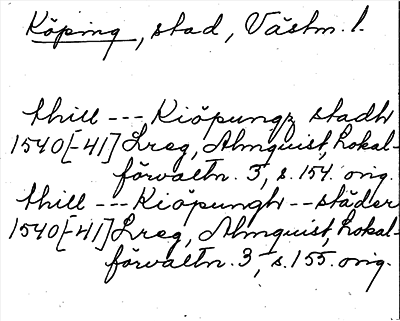 Köping, stad, Västm. l.
thill --- Kiöpungz stadh
1540[-41] Lreg, Almquist, Lokal-
förvaltn. 3, s. 154. orig.
thill --- Kiöpungh -- städer
1540[-41] Lreg, Almquist, Lokal-
förvaltn. 3, s. 155. orig.